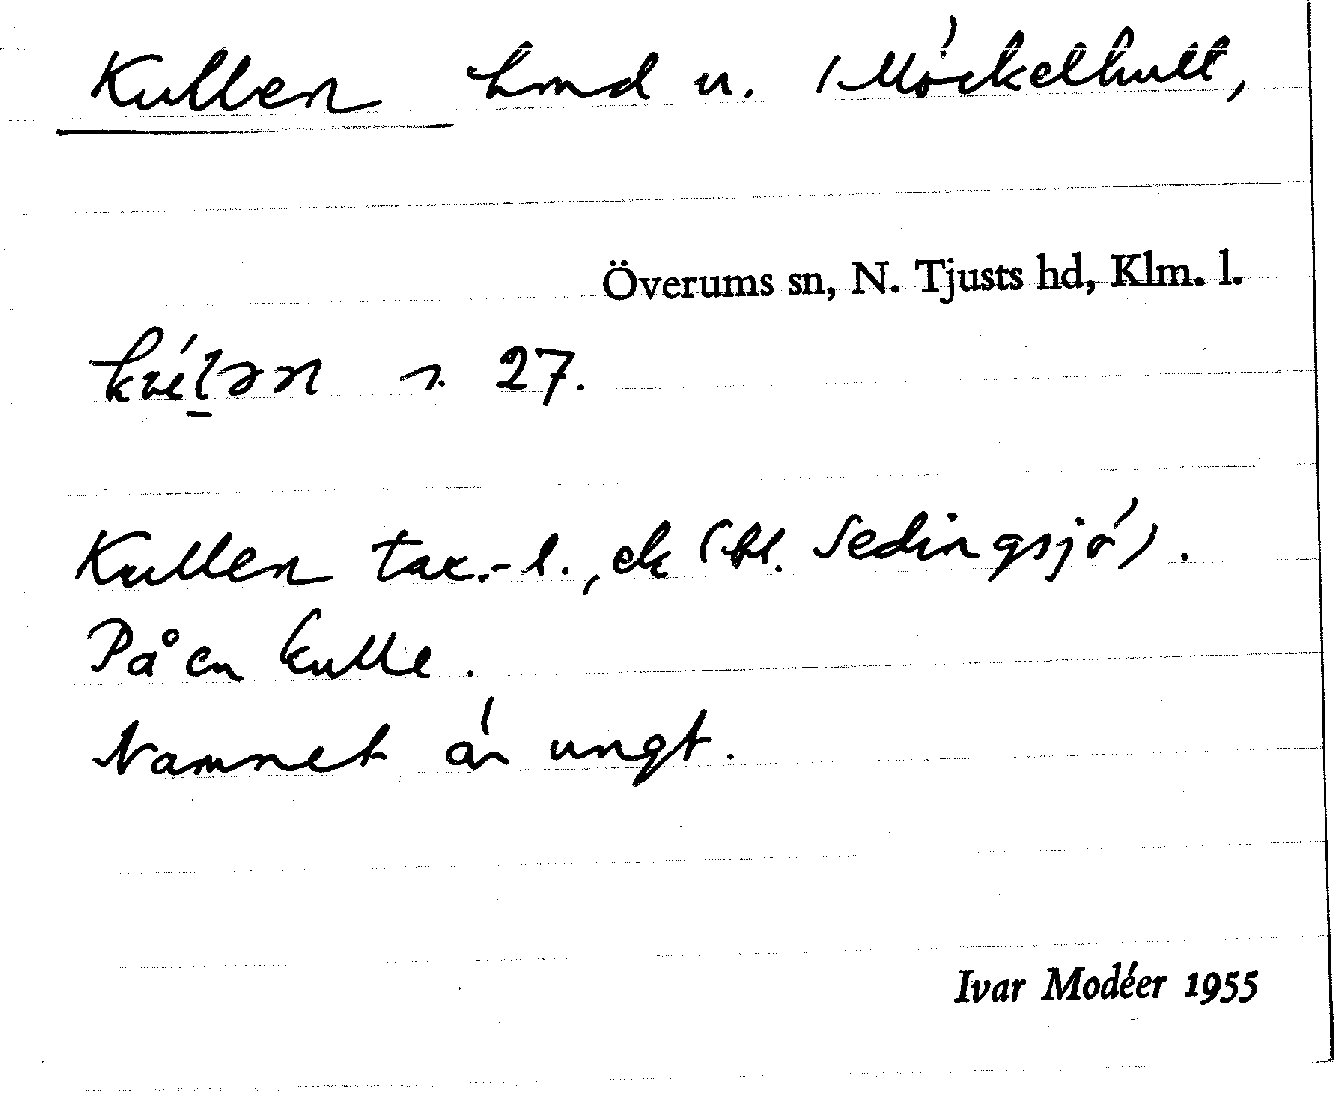 Kullen hmd u. Möckelhult,
Överums sn, N. Tjusts hd, Klm. l.
s. 27.
Kullen tax.-l., ek (bl. Sedingsjö).
På en kulle.
Namnet är ungt.
Ivar Modéer 1955